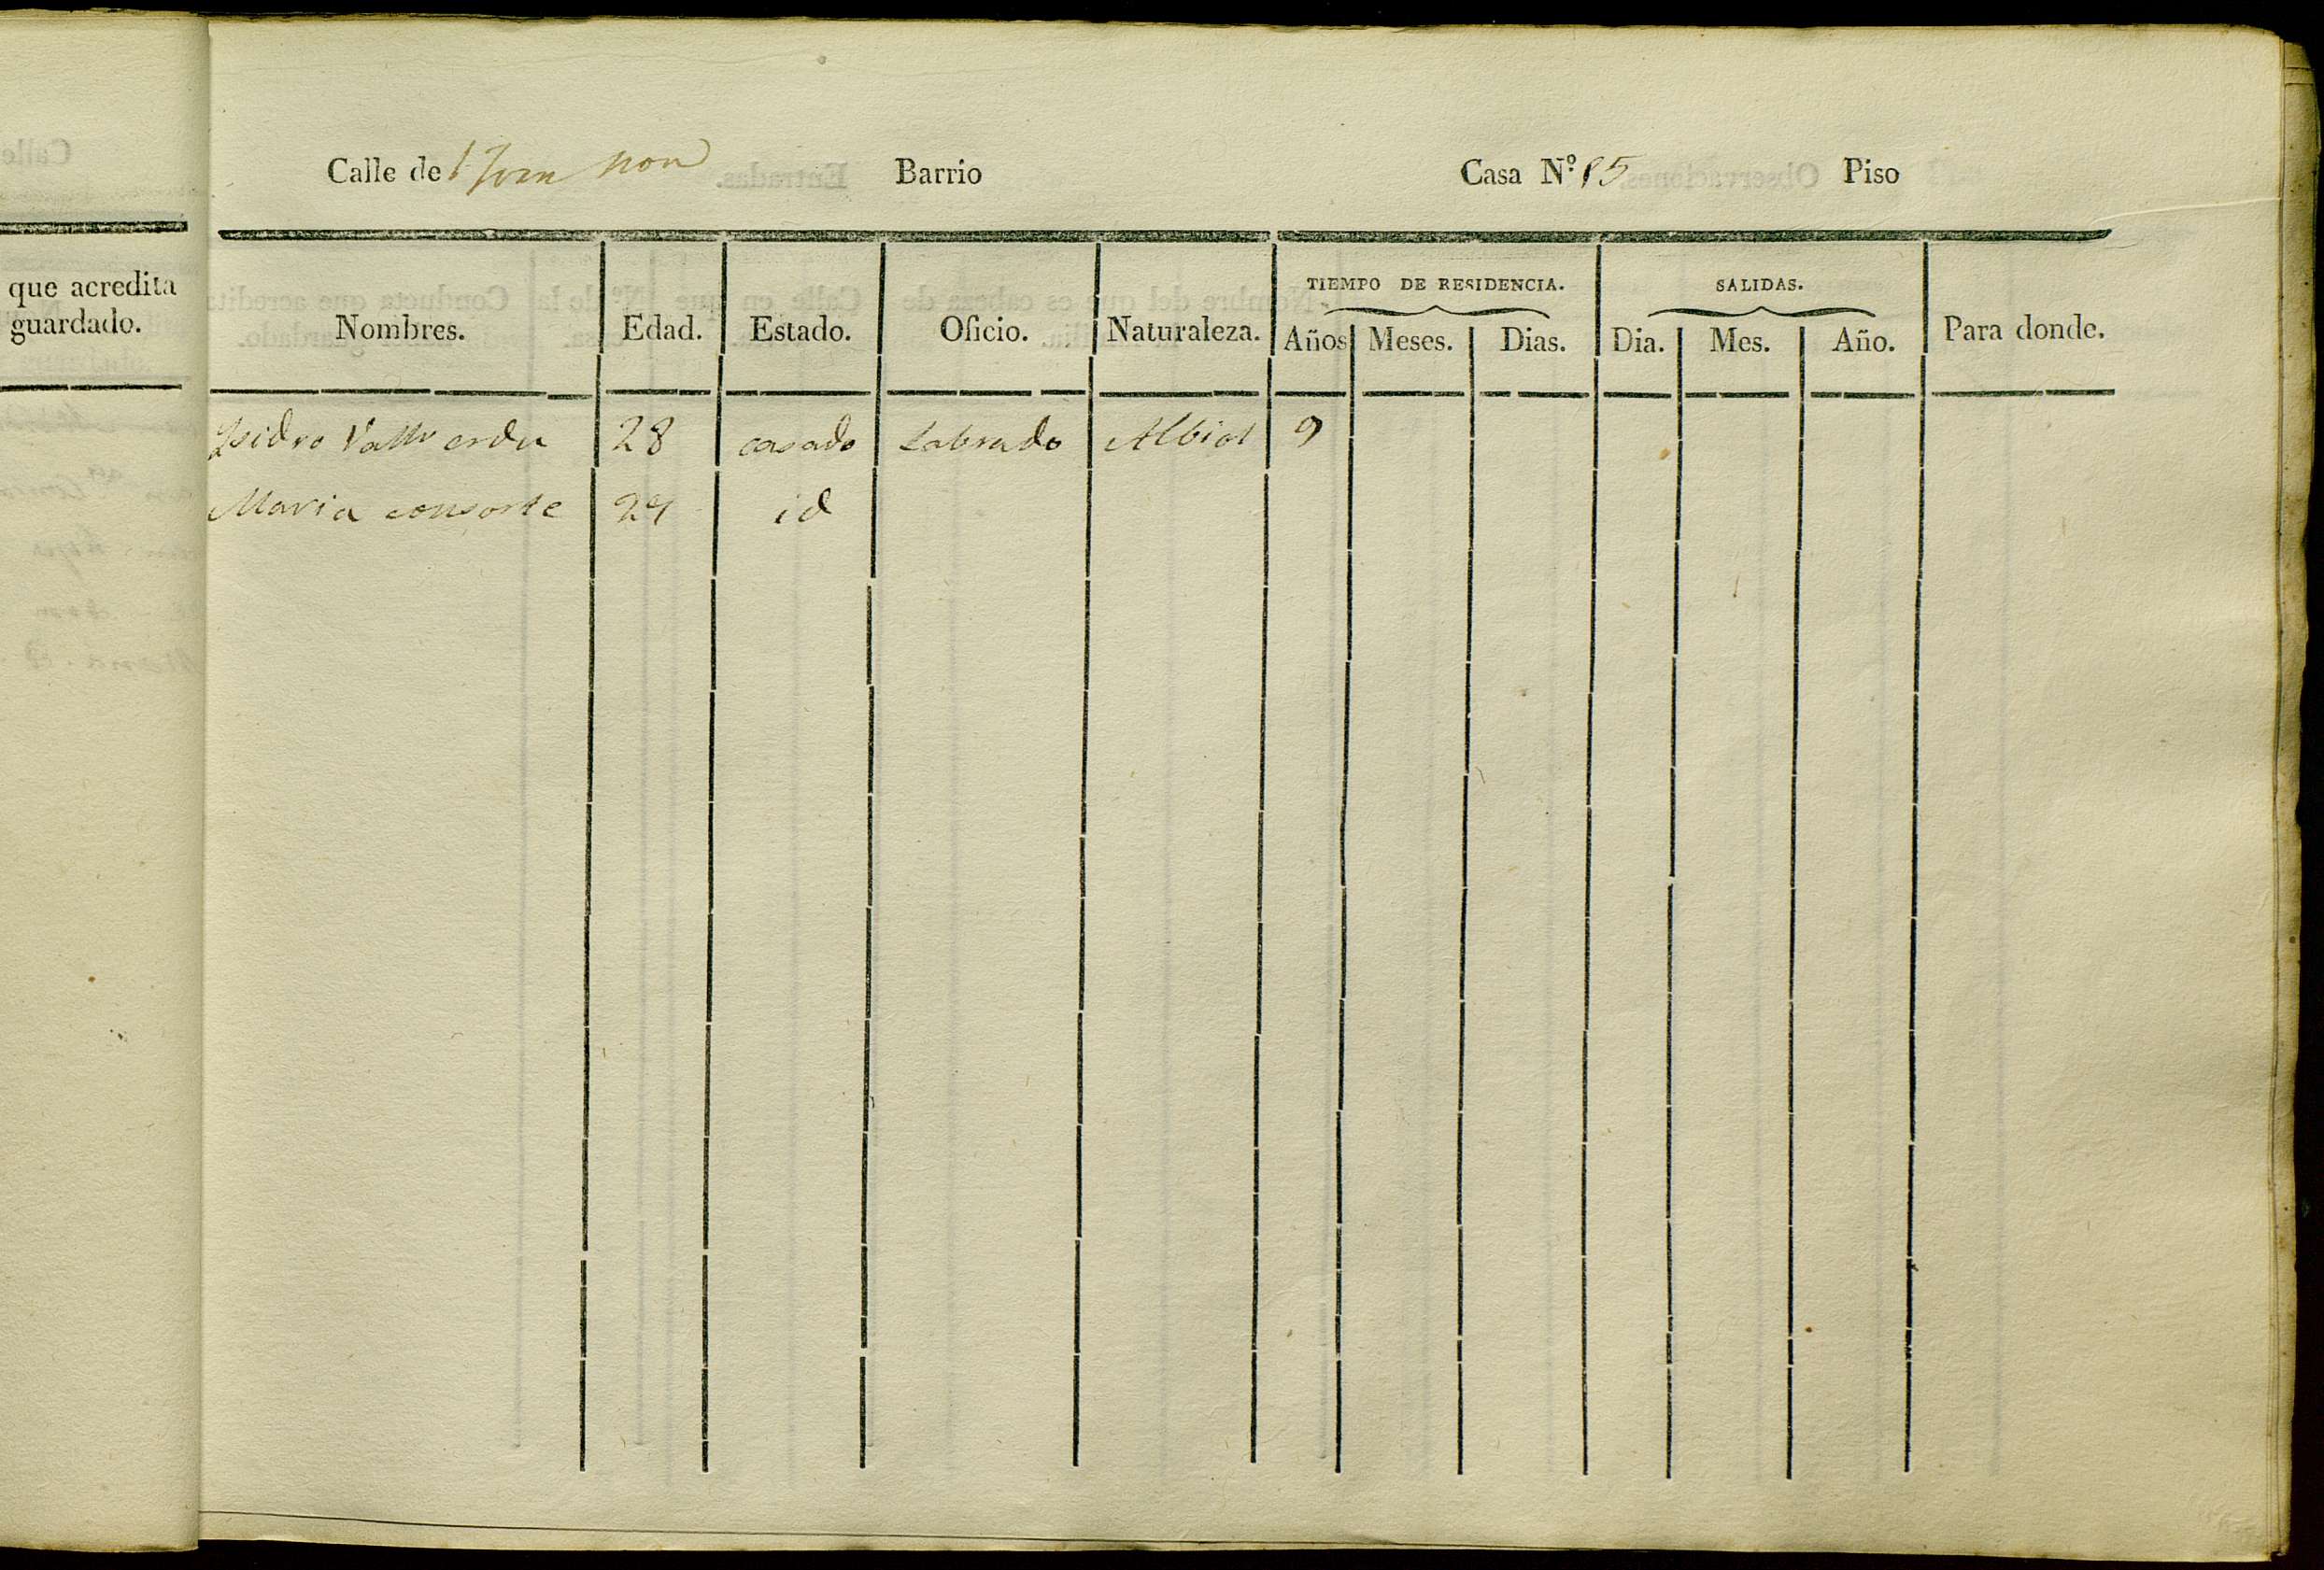 que acredita
guardado.
Calle de nou Barrio Casa N.º 85 Piso
Nombres. Edad. Estado. Oficio. Naturaleza. TIEMPO DE RESIDENCIA. Años Meses. Dias. SALIDAS. Dia. Mes. Año. Para donde.
Isidro Vallverdu 28 casado Labrado Albiol 9
Maria consorte 24 id